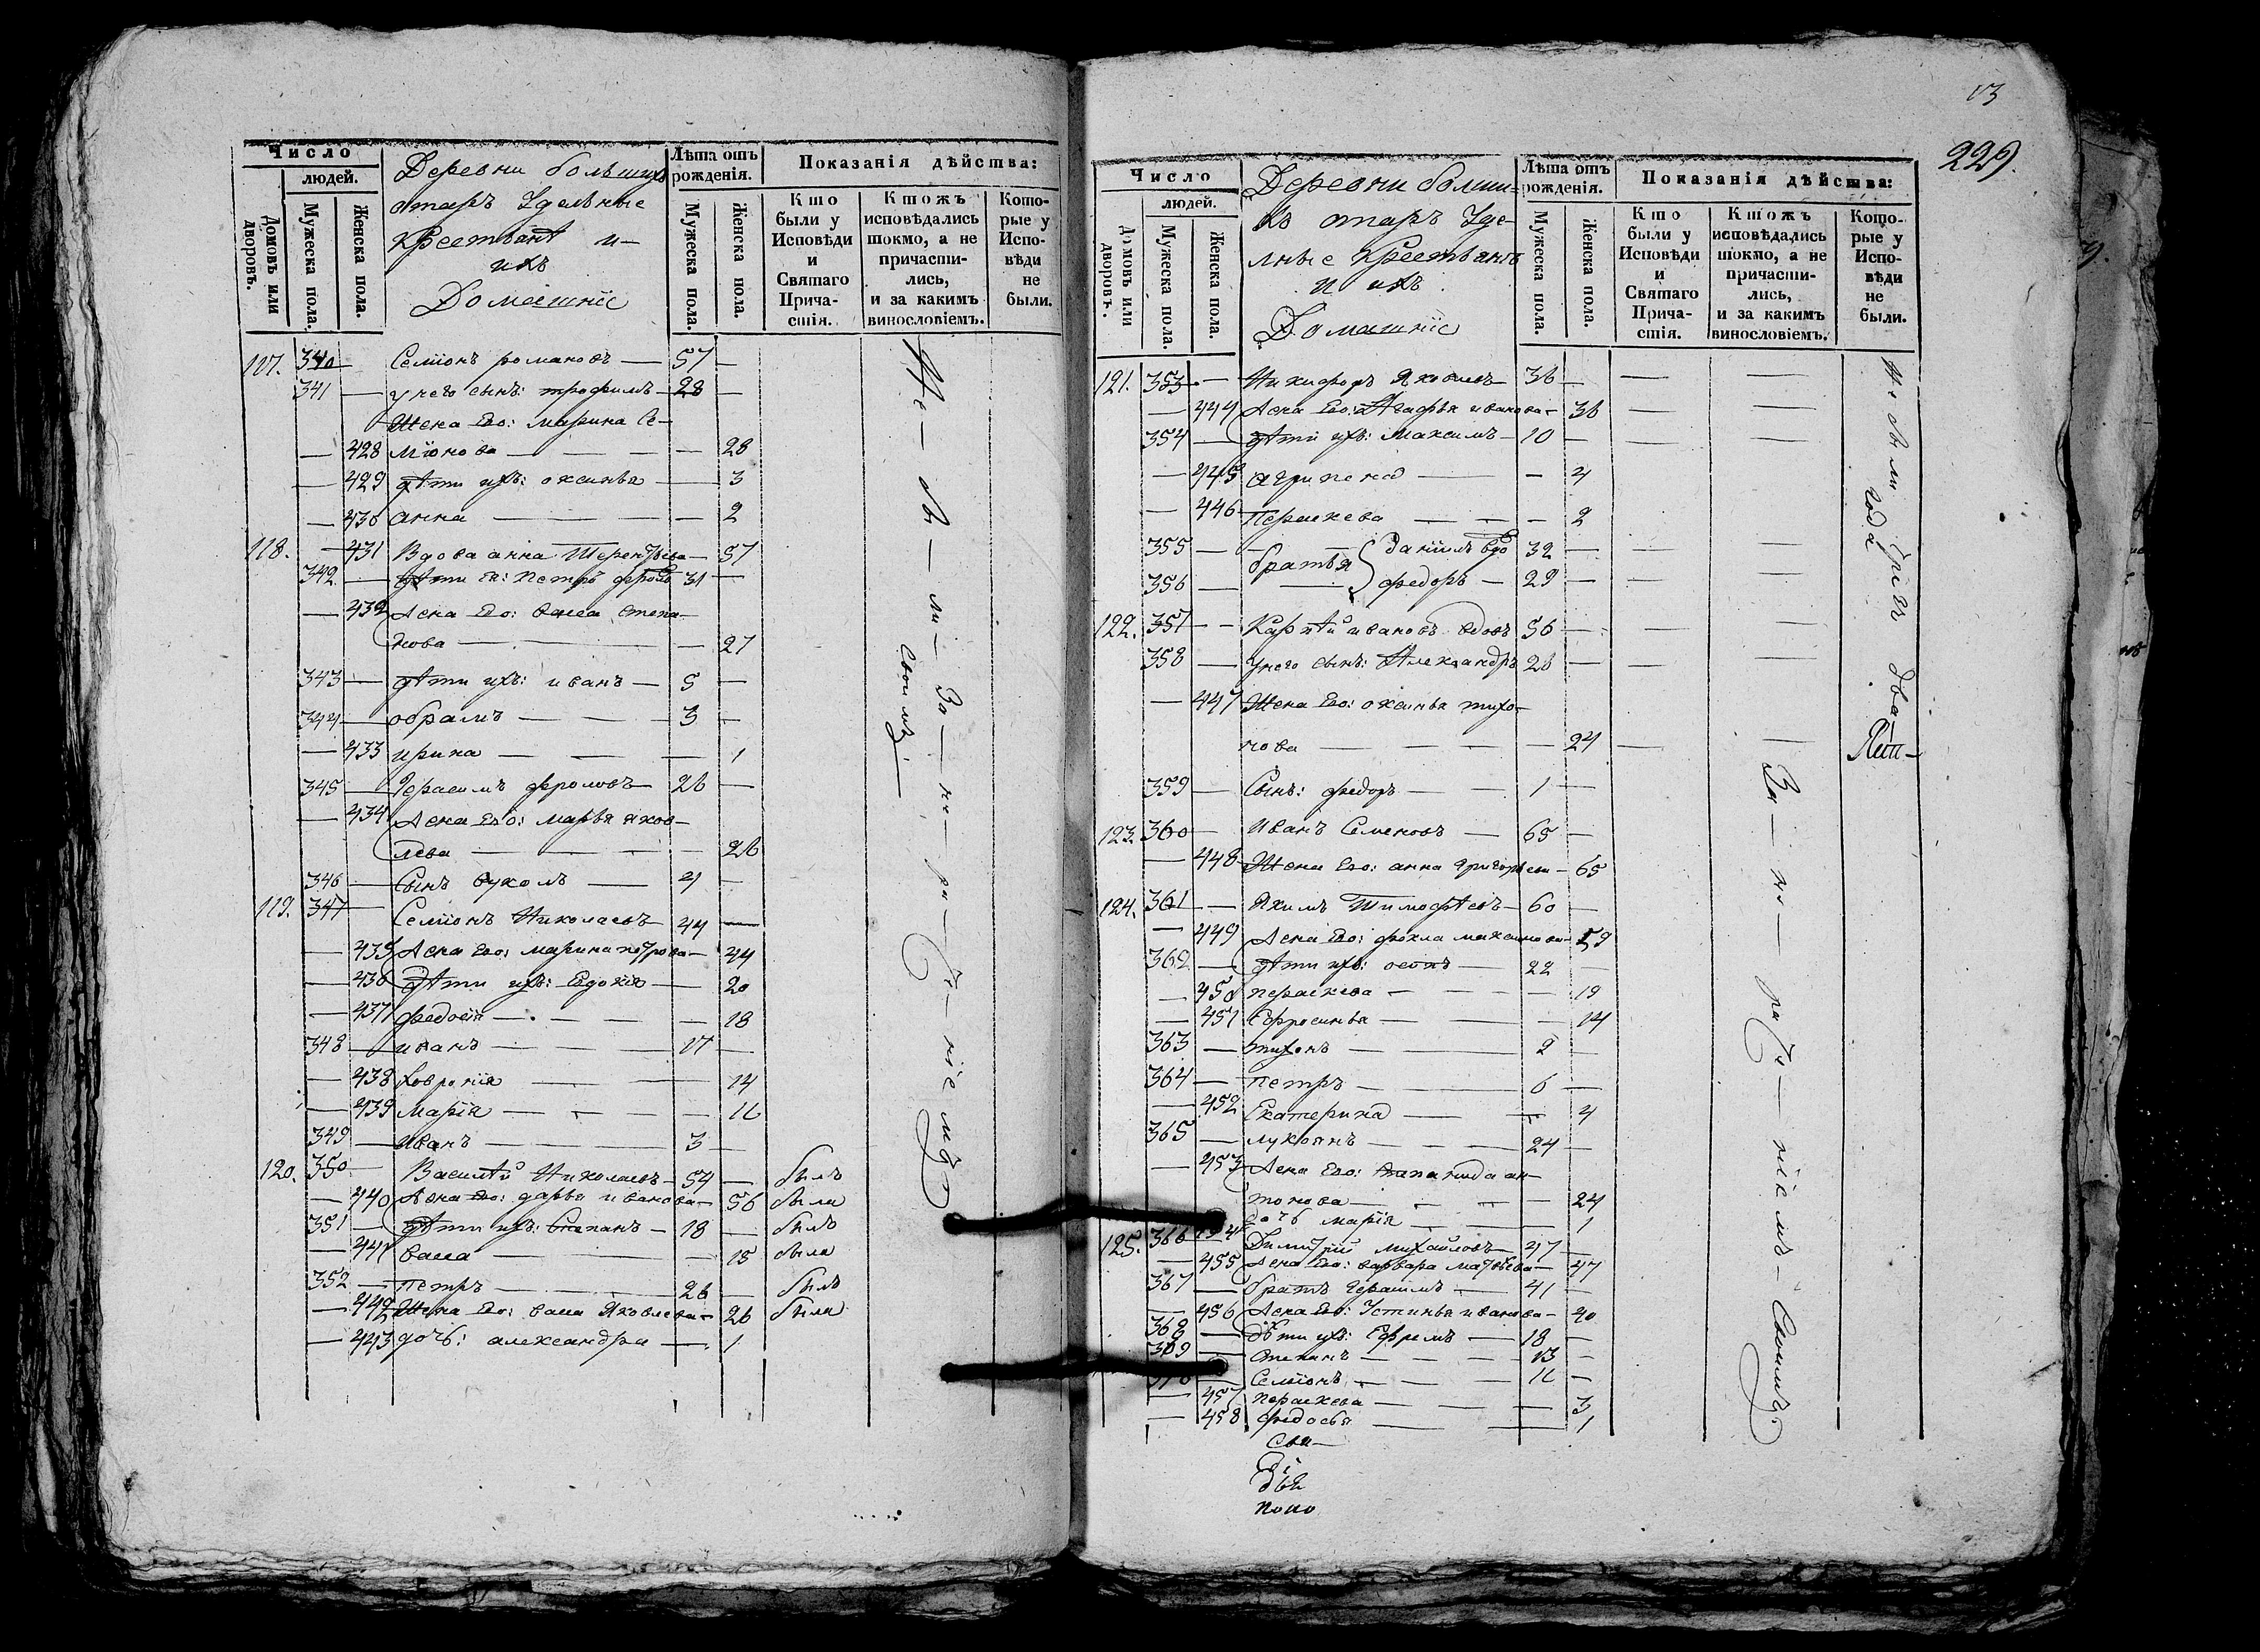 Число
людей.
Домовъ или дворовъ.
Мужеска пола.
Женска пола.
Деревни большихъ
отаръ Удельные
крестьянѣ и
ихъ
Домашніе
Лѣта отъ рожденія.
Мужеска пола.
Женска пола.
Показанія дѣйства:
Кто были у Исповѣди и Святаго Причастія.
Ктожъ исповѣдались токмо, а не причастились, и за какимъ винословіемъ.
Которые у Исповѣди не были.
117. 340 Семіонъ романовъ — 57 —
341 — у него сынъ: трофимъ — 28 —
Жена Его: марина Се-
— 428 міонова — — — — 28
— 429 дѣти ихъ: оксинья — — 3
— 430 анна — — — — 2
118. — 431 Вдова анна Терентьева — 57
342 — дѣти Ея: Петръ 31 —
— 432 Жена Его: васса степа-
нова — — — 27
343 — дѣти ихъ: иванъ — 5 —
344 — обрамъ — — — 3 —
— 433 ирина — — — — 1
345 — Герасимъ фроловъ — 26 —
— 434 Жена Его: марья яков-
лева — — — — 26
346 — Сынъ вуколъ — 4 —
119. 347 — Семіонъ Николаевъ — 44 —
— 435 Жена Его: марина петрова — 44
— 436 дѣти ихъ: Евдокія — 20
— 437 федосія — — — — 18
348 — иванъ — — — 17 —
— 438 ховронія — — — 14
— 439 Марія — — — — 11
349 — иванъ — — 3 —
120. 350 — Василѣй Николаевъ — 54 — былъ
— 440 Жена Его: дарья иванова — 56 была
351 — дѣти ихъ: Степанъ — 18 — былъ
— 441 васса — — 15 была
352 — петръ — — 26 — былъ
— 442 Жена Его: васса Яковлева — 26 была
— 443 дочь: александра — — 1
Не — бы — ли — За — не — ра — дѣ — ніемъ
своимъ
13
229.
Число
людей.
Домовъ или дворовъ.
Мужеска пола.
Женска пола.
Деревни больши-
хъ отаръ Уде-
лные крестьянѣ
и ихъ
Домашніе
Лѣта отъ рожденія.
Мужеска пола.
Женска пола.
Показанія дѣйства:
Кто были у Исповѣди и Святаго Причастія.
Ктожъ исповѣдались токмо, а не причастились, и за какимъ винословіемъ.
Которые у Исповѣди не были.
121. 353 — Никифоръ Яковлевъ — 36 — — —
— 444 Жена Его: Агафья иванова — 36 — —
354 — дѣти ихъ: Максимъ — 10 — — —
— 445 агрипена — — 4
— 446 Пераскева — — — 2
355 — братья Даніилъ вдо 32 — — —
356 — федоръ — 29 — — —
122. 357 — Карпѣй ивановъ вдовъ 56 — — —
358 — у него сынъ: Александръ 28 — — —
— 447 Жена Его: оксинья тихо-
нова — — — — 24 — —
359 — Сынъ: федоръ — — 1 —
123. 360 — Иванъ Семеновъ — 65 —
— 448 Жена Его: анна Григорьева — 65
124. 361 — Якимъ Тимофѣевъ — 60 —
— 449 Жена Его: фекла максимова — 59
362 — дѣти ихъ: осопъ — 22 —
— 450 пераскева — — — 19
— 451 Ефросинья — — — 14
363 — тихонъ — — 2 —
364 — петръ — — 6 —
— 452 Екатерина — — 4
365 — лукоянъ — — — 24 —
— 453 Жена Его: ан-
тонова — — — — 24
дочь марія — — — 1
125. 366 Димитрій михайловъ — 47 —
— 455 Жена Его: варвара матвѣева — 47
367 — братъ Герасимъ — 41 —
— 456 Жена Его: Устинья иванова — 40
368 — дѣти ихъ: Ефремъ — 18 —
369 — Степанъ — — — 13 —
370 Семіонъ — — — 11 —
— 457 пераскева — — — 3
— 458 федосья — — — 1
Свя-
дьѣ
поно
Не были чрезъ два
года
За — не — ра — дѣ — ніемъ — Своимъ